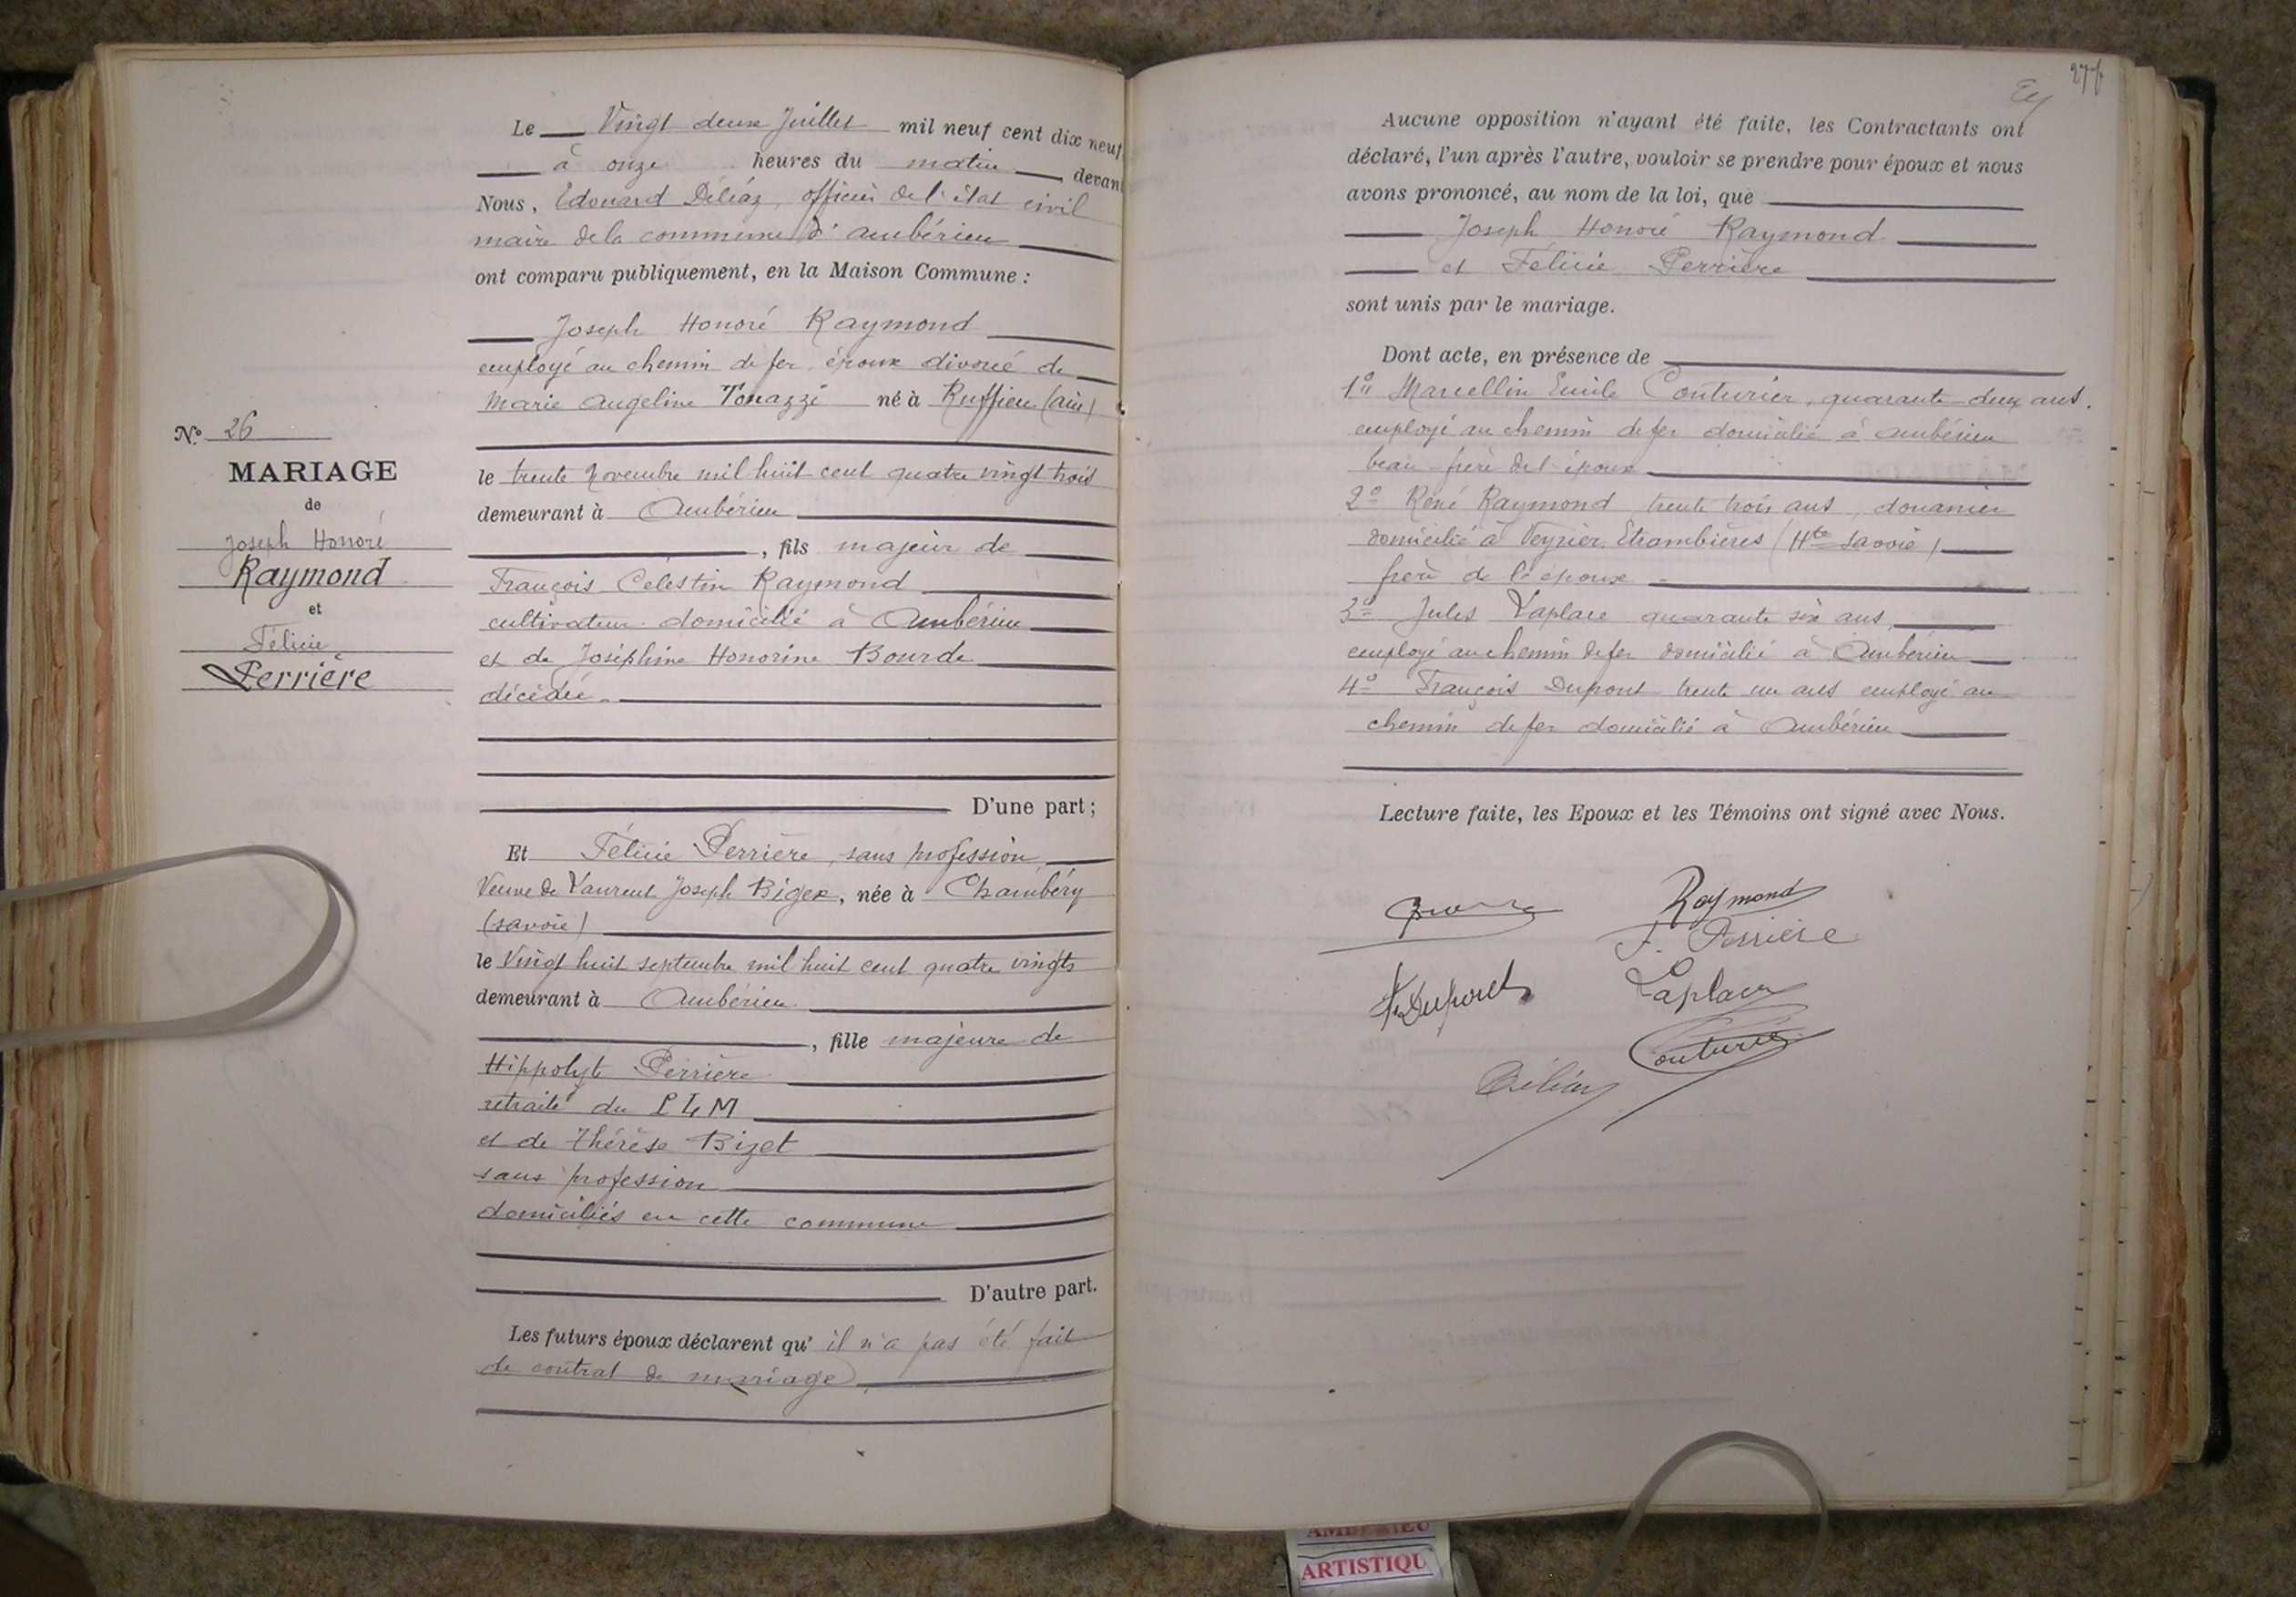 Le Vingt deux Juillet mil neuf cent dix neuf
à onze heures du matin devant
Nous, Edouard Déliaz, officier de l'état civil
maire de la commune d'Ambérieu
ont comparu publiquement, en la Maison Commune :
Joseph Honoré Raymond
employé au chemin de fer, époux divorcé de
Marie Angeline Tonazzi né à Ruffieu (Ain)
le trente Novembre mil huit cent quatre vingt trois
demeurant à Ambérieu
, fils majeur de
François Célestin Raymond
cultivateur domicilié à Ambérieu
et de Joséphine Honorine Bourde
décédée.
D'une part ;
N° 26
MARIAGE
de
Joseph Honoré
Raymond
et
Félicie
Perrière
Et Félicie Perrière, sans profession
Veuve de Laurent Joseph Biger, née à Chambéry
(Savoie)
le Vingt huit septembre mil huit cent quatre vingts
demeurant à Ambérieu
, fille majeure de
Hippolyte Perrière
retraité du PLM
et de Thérèse Bizet
sans profession
domiciliés en cette commune
D'autre part.
Les futurs époux déclarent qu'il n'a pas été fait
de contrat de mariage
Aucune opposition n'ayant été faite, les Contractants ont
déclaré, l'un après l'autre, vouloir se prendre pour époux et nous
avons prononcé, au nom de la loi, que
Joseph Honoré Raymond
et Félicie Perrière
sont unis par le mariage.
Dont acte, en présence de
1° Marcellin Emile Couturier, quarante-deux ans.
employé au chemin de fer domicilié à Ambérieu
beau frère de l'époux
2° René Raymond trente trois ans, douanier
domicilié à Veyrier. Etrambières (Hte Savoie)
frère de l'époux
3° Jules Laplace quarante six ans,
employé au chemin de fer domicilié à Ambérieu
4° François Dupont trente un ans employé au
chemin de fer domicilié à Ambérieu
Lecture faite, les Epoux et les Témoins ont signé avec Nous.
Raymond
F. Perrière
F. Dupont
Laplace
Couturier
Déliaz
ARTISTIQU